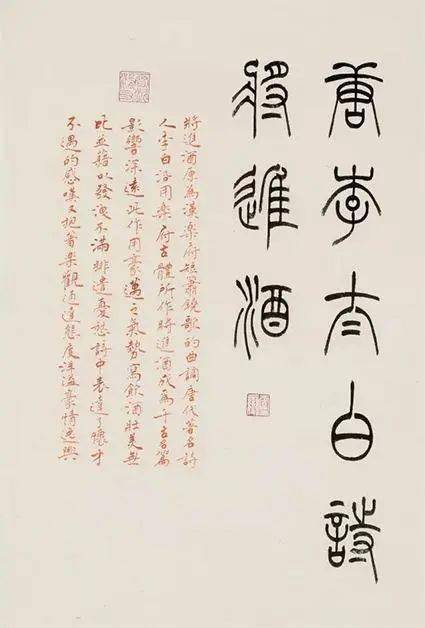 唐李太白詩
將進酒
將進酒原為漢樂府短簫鐃歌的曲調唐代著名詩
人李白沿用樂府古體所作將進酒成為千古名篇
影響深遠此作用豪邁之氣勢寫飲酒壯美無
比並藉以發洩不滿排遣憂愁詩中表達了懷才
不遇的感嘆又抱著樂觀通達態度洋溢豪情逸興